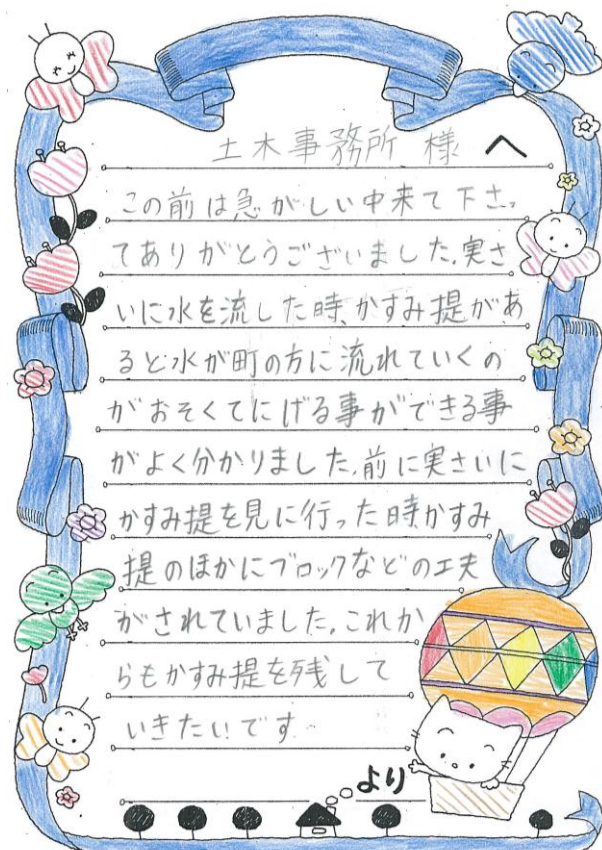 土木事務所 様 へ
この前は急がしい中来て下さっ
てありがとうございました。実さ
いに水を流した時、かすみ提があ
ると水が町の方に流れていくの
がおそくてにげる事ができる事
がよく分かりました。前に実さいに
かすみ提を見に行った時かすみ
提のほかにブロックなどの工夫
がされていました。これか
らもかすみ提を残して
いきたいです。
より